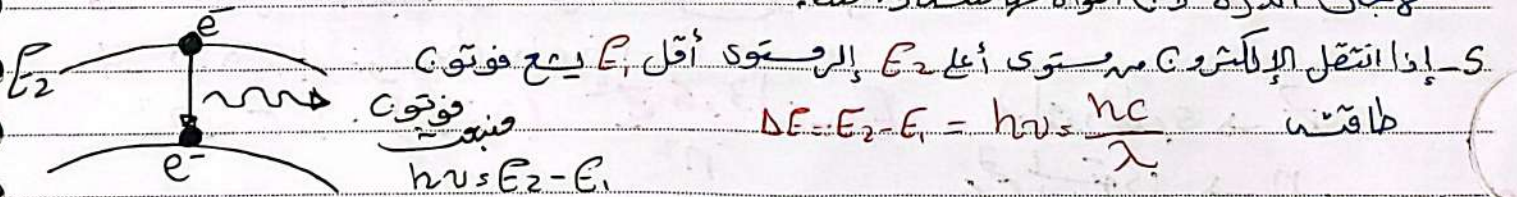 5- إذا انتقل الإلكترون من مستوى أعلى E₂ إلى مستوى أقل E₁ يشع فوتون
طاقته ΔE = E₂ - E₁ = hυ = hc/λ
e⁻
E₂
فوتون
منبعث
e⁻
hυ = E₂ - E₁